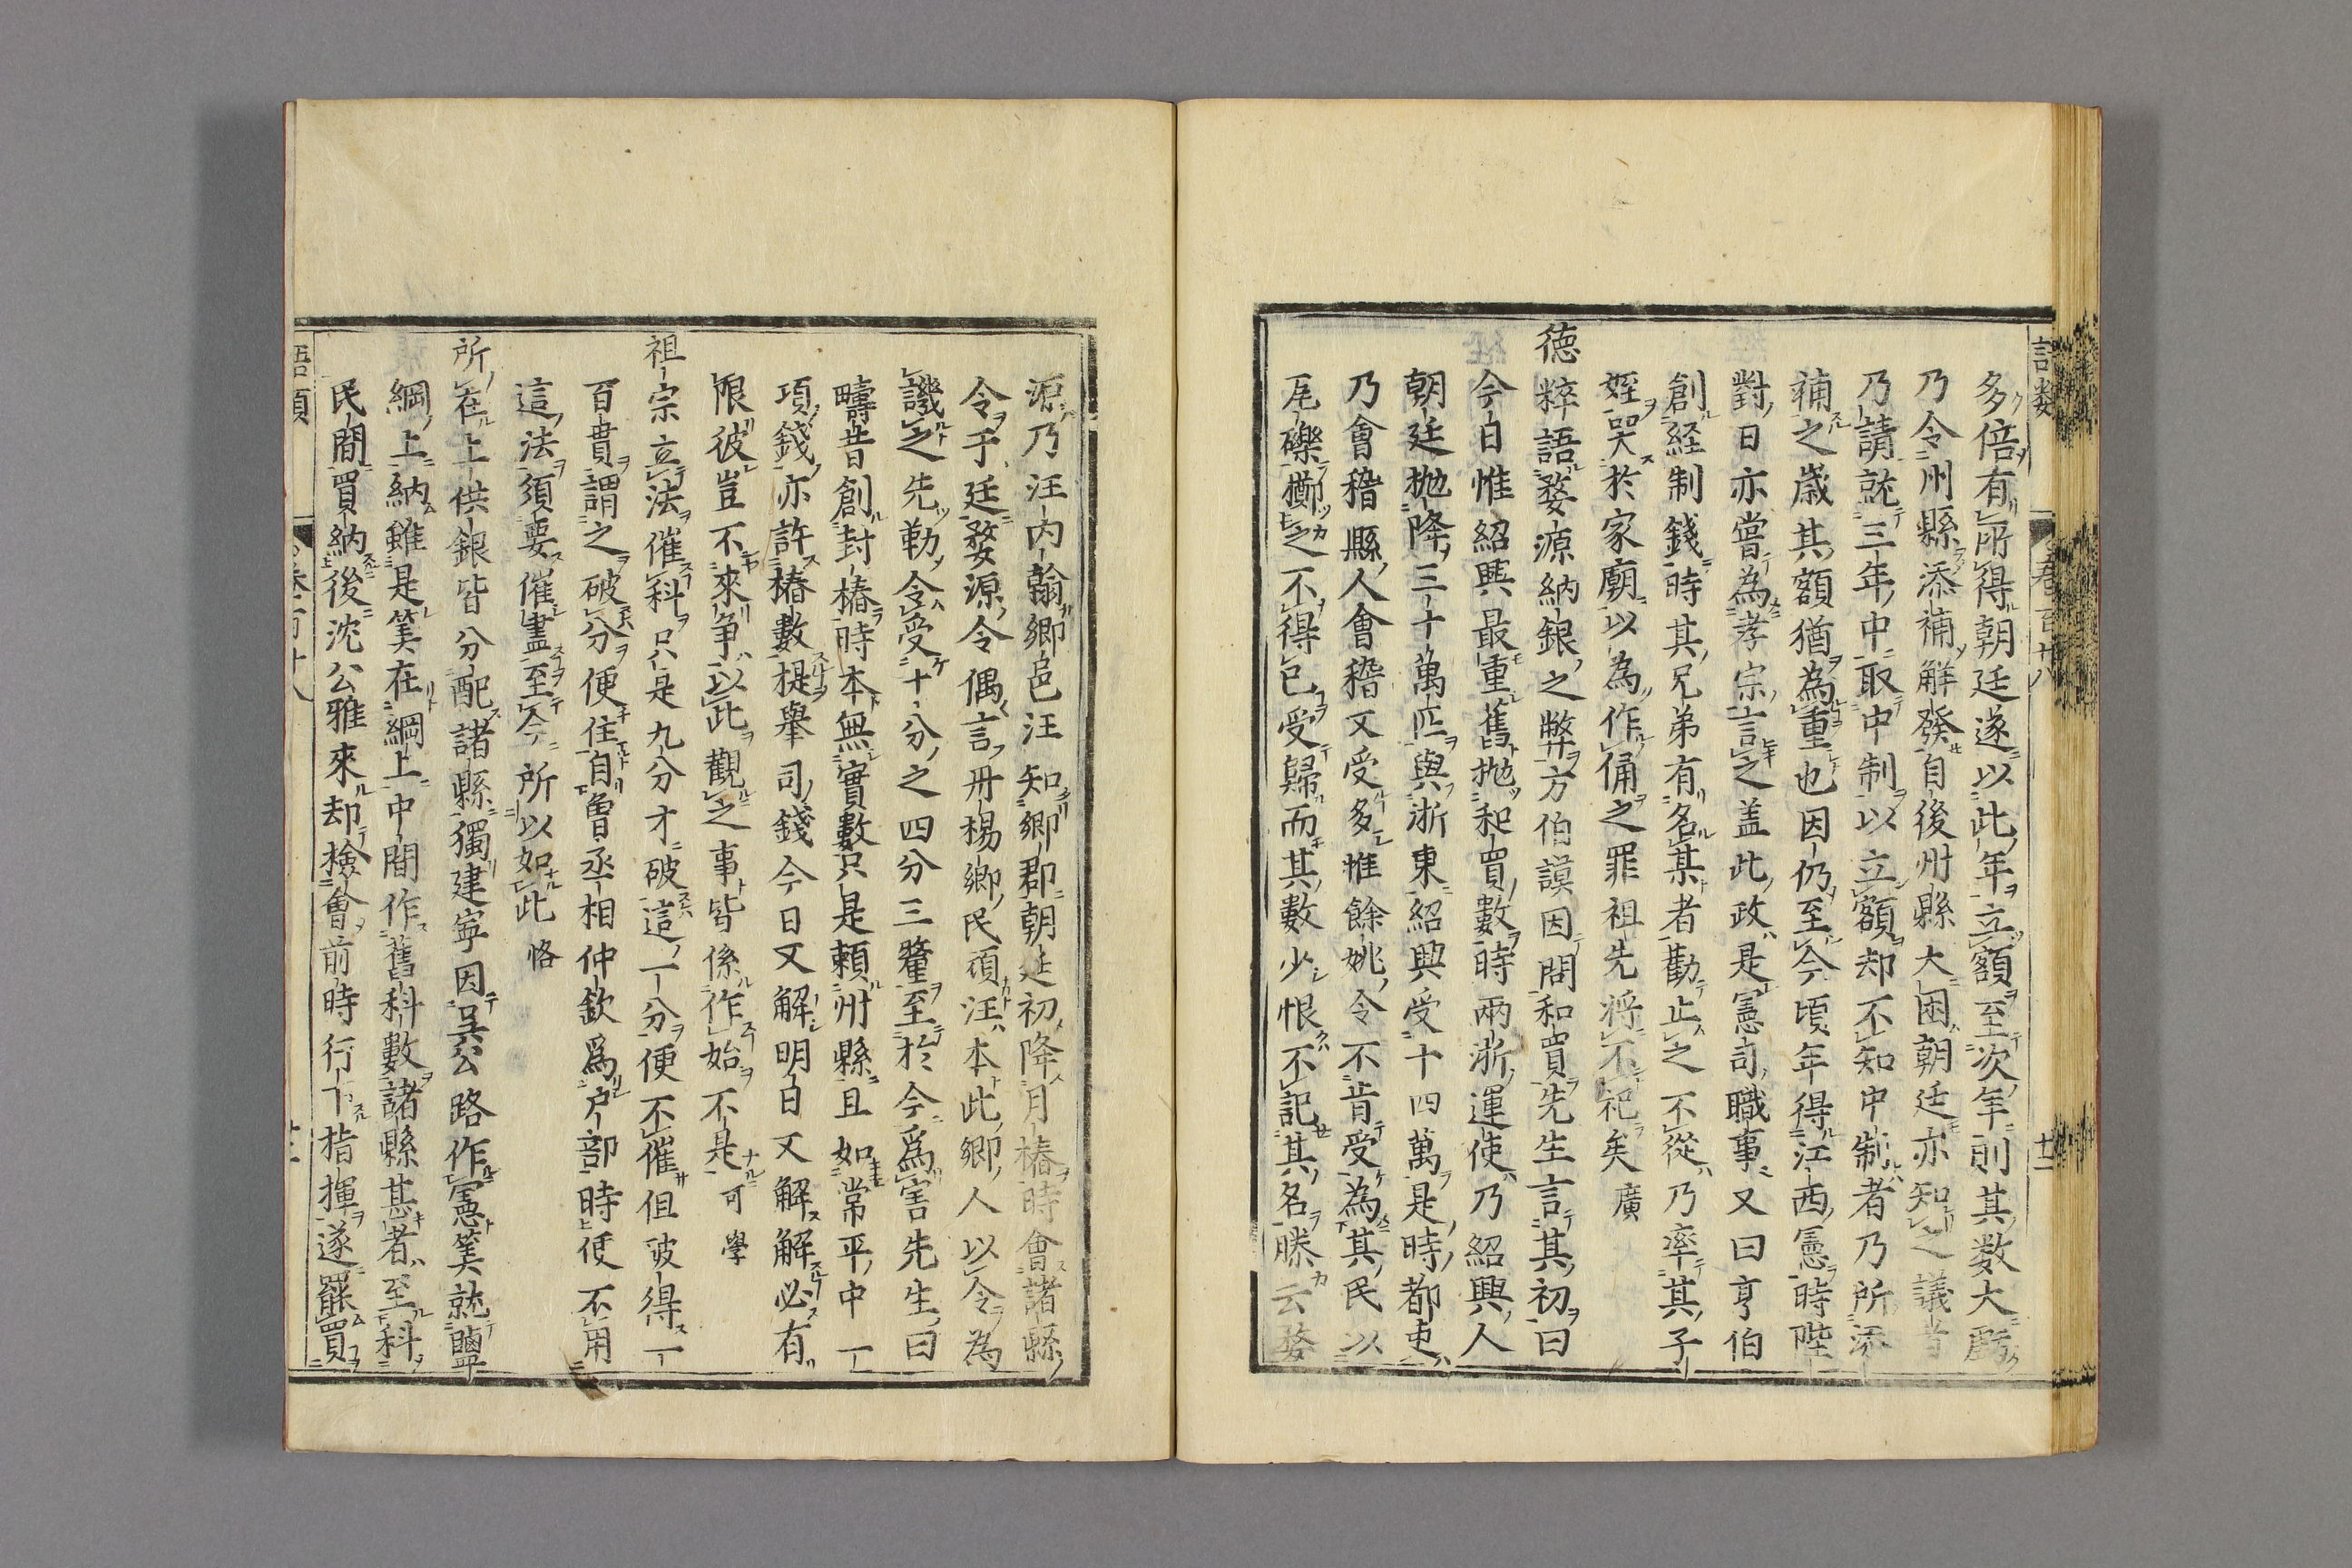 多倍有所得朝廷遂以此年立額至次年則其数大虧
乃令州縣添補解發自後州縣大困朝廷亦知之議者
乃請就三年中取中制以立額却不知中制者乃所添
補之歳其額猶為重也因仍至今頃年得江西憲時陛
對日亦嘗為孝宗言之盖此政是憲司職事又曰亨伯
創経制錢時其兄弟有名某者勸止之不從乃率其子
姪哭於家廟以為作俑之罪祖先将不祀矣 廣
德粹語婺源納銀之弊方伯謨因問和買先生言其初曰
今日惟紹興最重舊抛和買數時兩浙運使乃紹興人
朝廷抛降三十萬匹與浙東紹興受十四萬是時都吏
乃會稽縣人會稽又受多惟餘姚令不肯受為其民以
瓦礫擲之不得已受歸而其數少恨不記其名滕云婺
源乃汪内翰卿邑汪知卿郡朝廷初降月樁時會諸縣
令于廷婺源令偶言丹楊卿民頑汪本此卿人以令為
譏之先勒令受十分之四分三釐至於今爲害先生曰
疇昔創封樁時本無實數只是頼州縣且如常平中一
項錢亦許樁數提舉司錢今日又解明日又解解必有
限彼豈不來争以此觀之事皆係作始不是 可學
祖宗立法催科只是九分才破這一分便不催但破得一
百貫謂之破分便住自曾丞相仲欽爲户部時便不用
這法須要催盡至今所以如此 恪
所在上供銀皆分配諸縣獨建寧因吳公路作憲筭就鹽
綱上納雖是筭在綱上中間作舊科數諸縣甚者至科
民間買納後沈公雅來却檢會前時行下指揮遂罷買